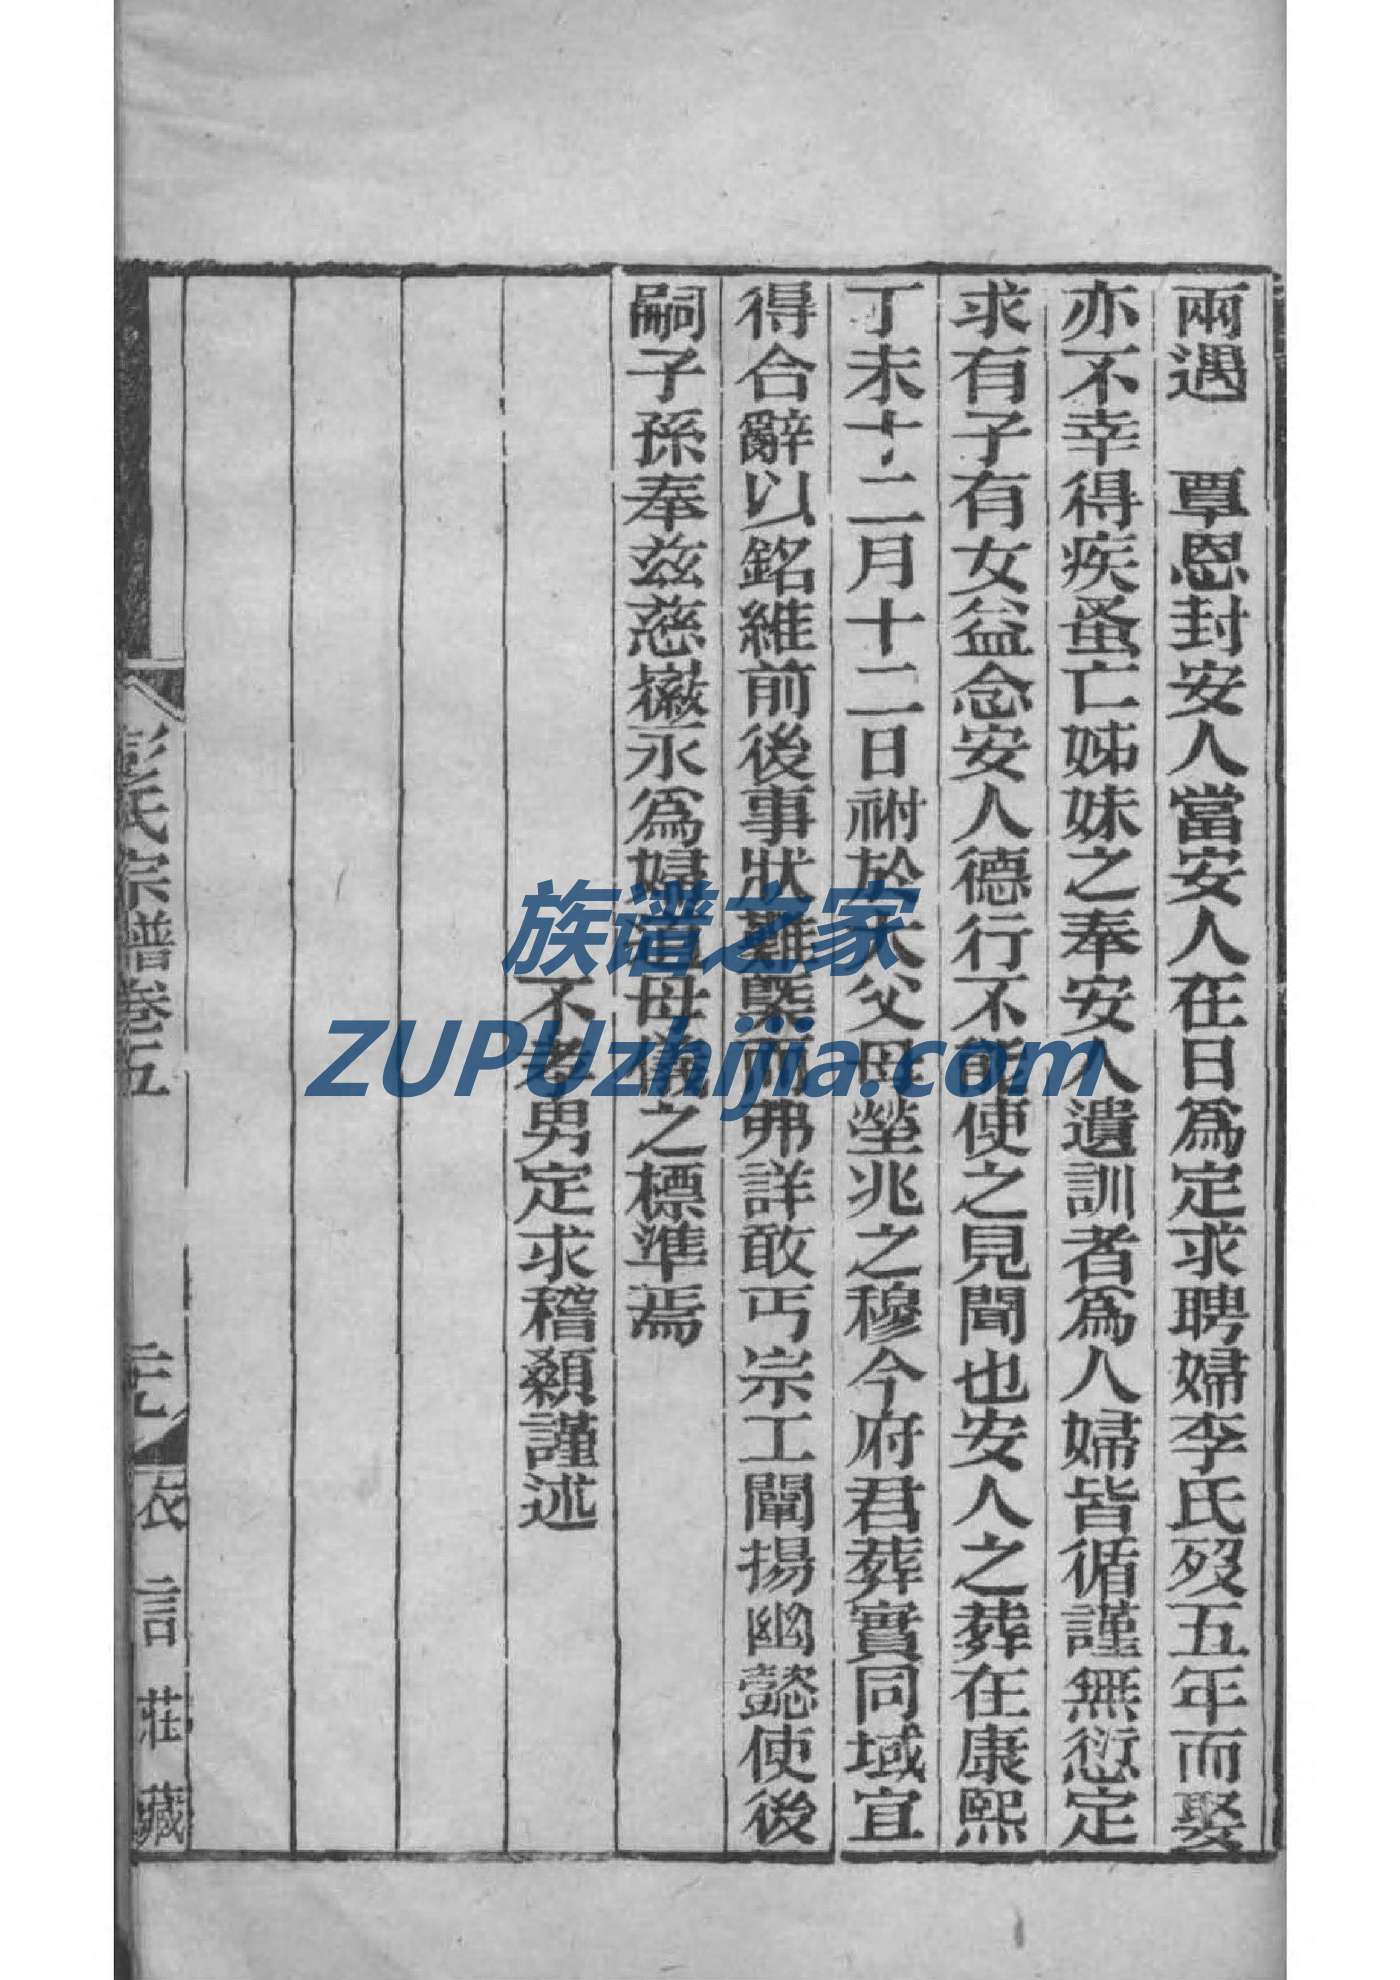 兩遇　覃恩封安人當安人在日為定求聘婦李氏歿五年而娶
亦不幸得疾蚤亡姊妹之奉安人遺訓者為人婦皆循謹無愆定
求有子有女益念安人德行不能使之見聞也安人之葬在康熙
丁未十二月十二日祔於大父母塋兆之穆今府君葬實同域宜
得合辭以銘維前後事狀難槩而弗詳敢丐宗工闡揚幽懿使後
嗣子孫奉茲慈徽永為婦道母儀之標準焉
不孝男定求稽顙謹述
彭氏宗譜卷五
元
衣言莊藏
族谱之家
ZUPUzhijia.com